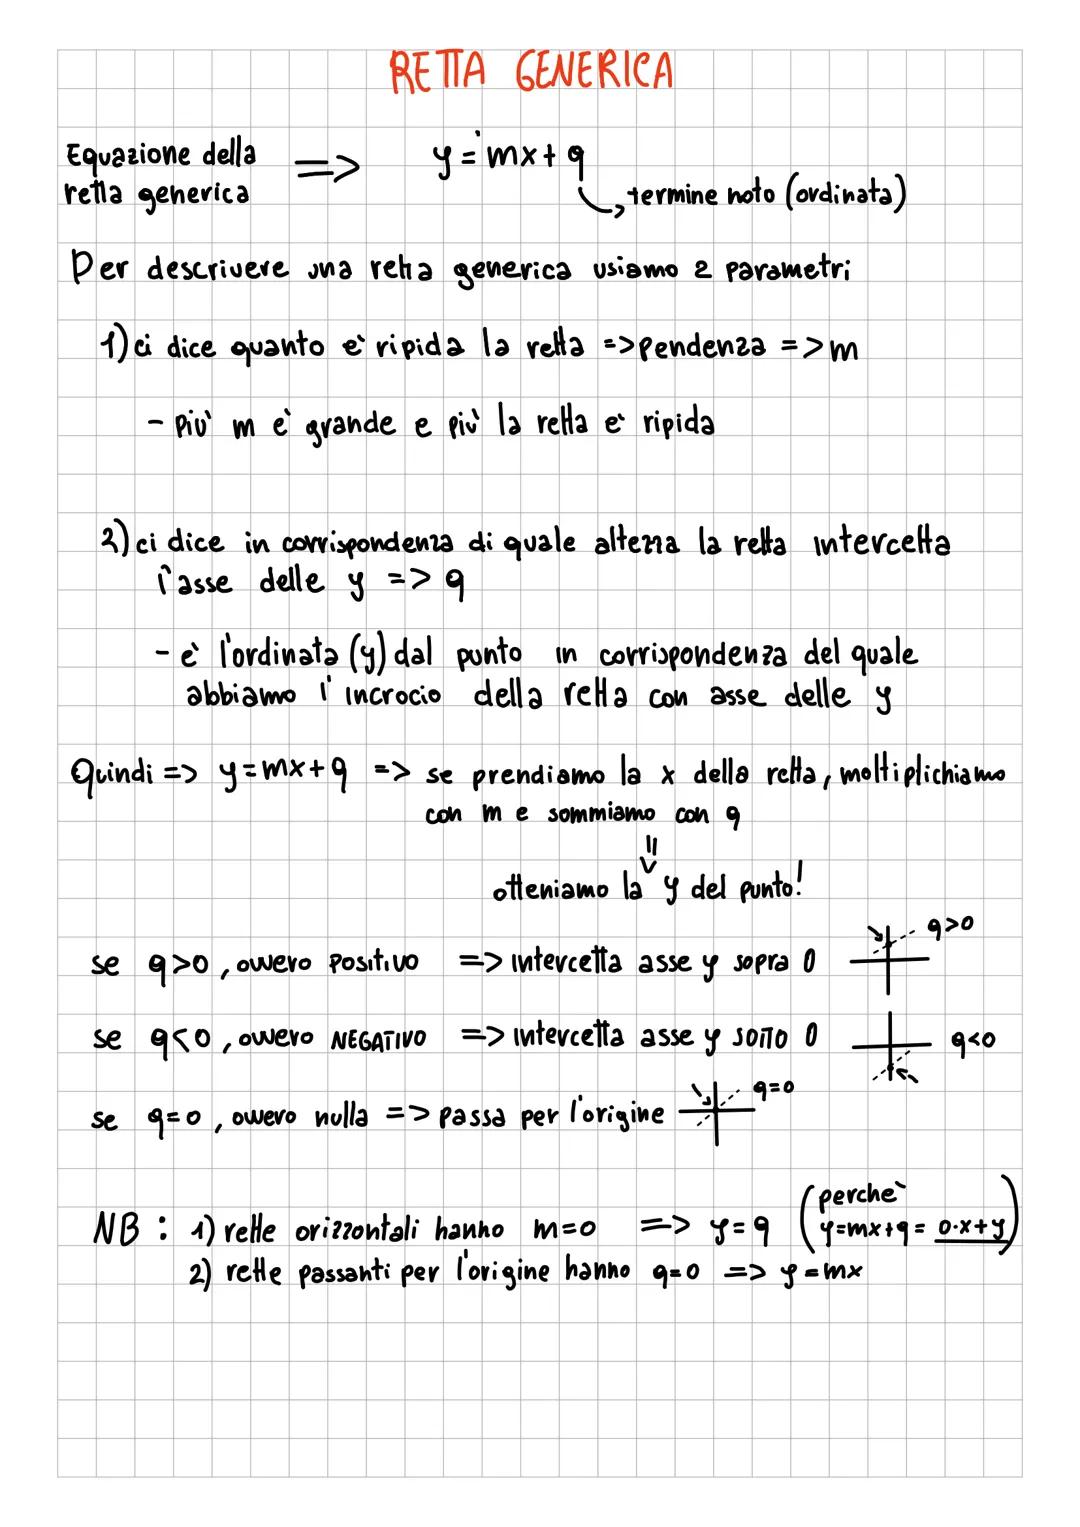 RETTA GENERICA
Equazione della
retta generica => y = mx + q
termine noto (ordinata)
Per descrivere una retta generica usiamo 2 parametri
1) ci dice quanto è ripida la retta => pendenza => m
- più m è grande e più la retta è ripida
2) ci dice in corrispondenza di quale altezza la retta intercetta
l'asse delle y => q
- è l'ordinata (y) dal punto in corrispondenza del quale
abbiamo l'incrocio della retta con asse delle y
Quindi => y=mx+q => se prendiamo la x della retta, moltiplichiamo
con m e sommiamo con q
otteniamo la y del punto!
se q>0, ovvero positivo => intercetta asse y sopra 0 q>0
se q<0, ovvero NEGATIVO => intercetta asse y SOTTO 0 q<0
se q=0, ovvero nulla => passa per l'origine q=0
NB: 1) rette orizzontali hanno m=0 => y=q (perchè
y=mx+q = 0·x+y)
2) rette passanti per l'origine hanno q=0 => y=mx